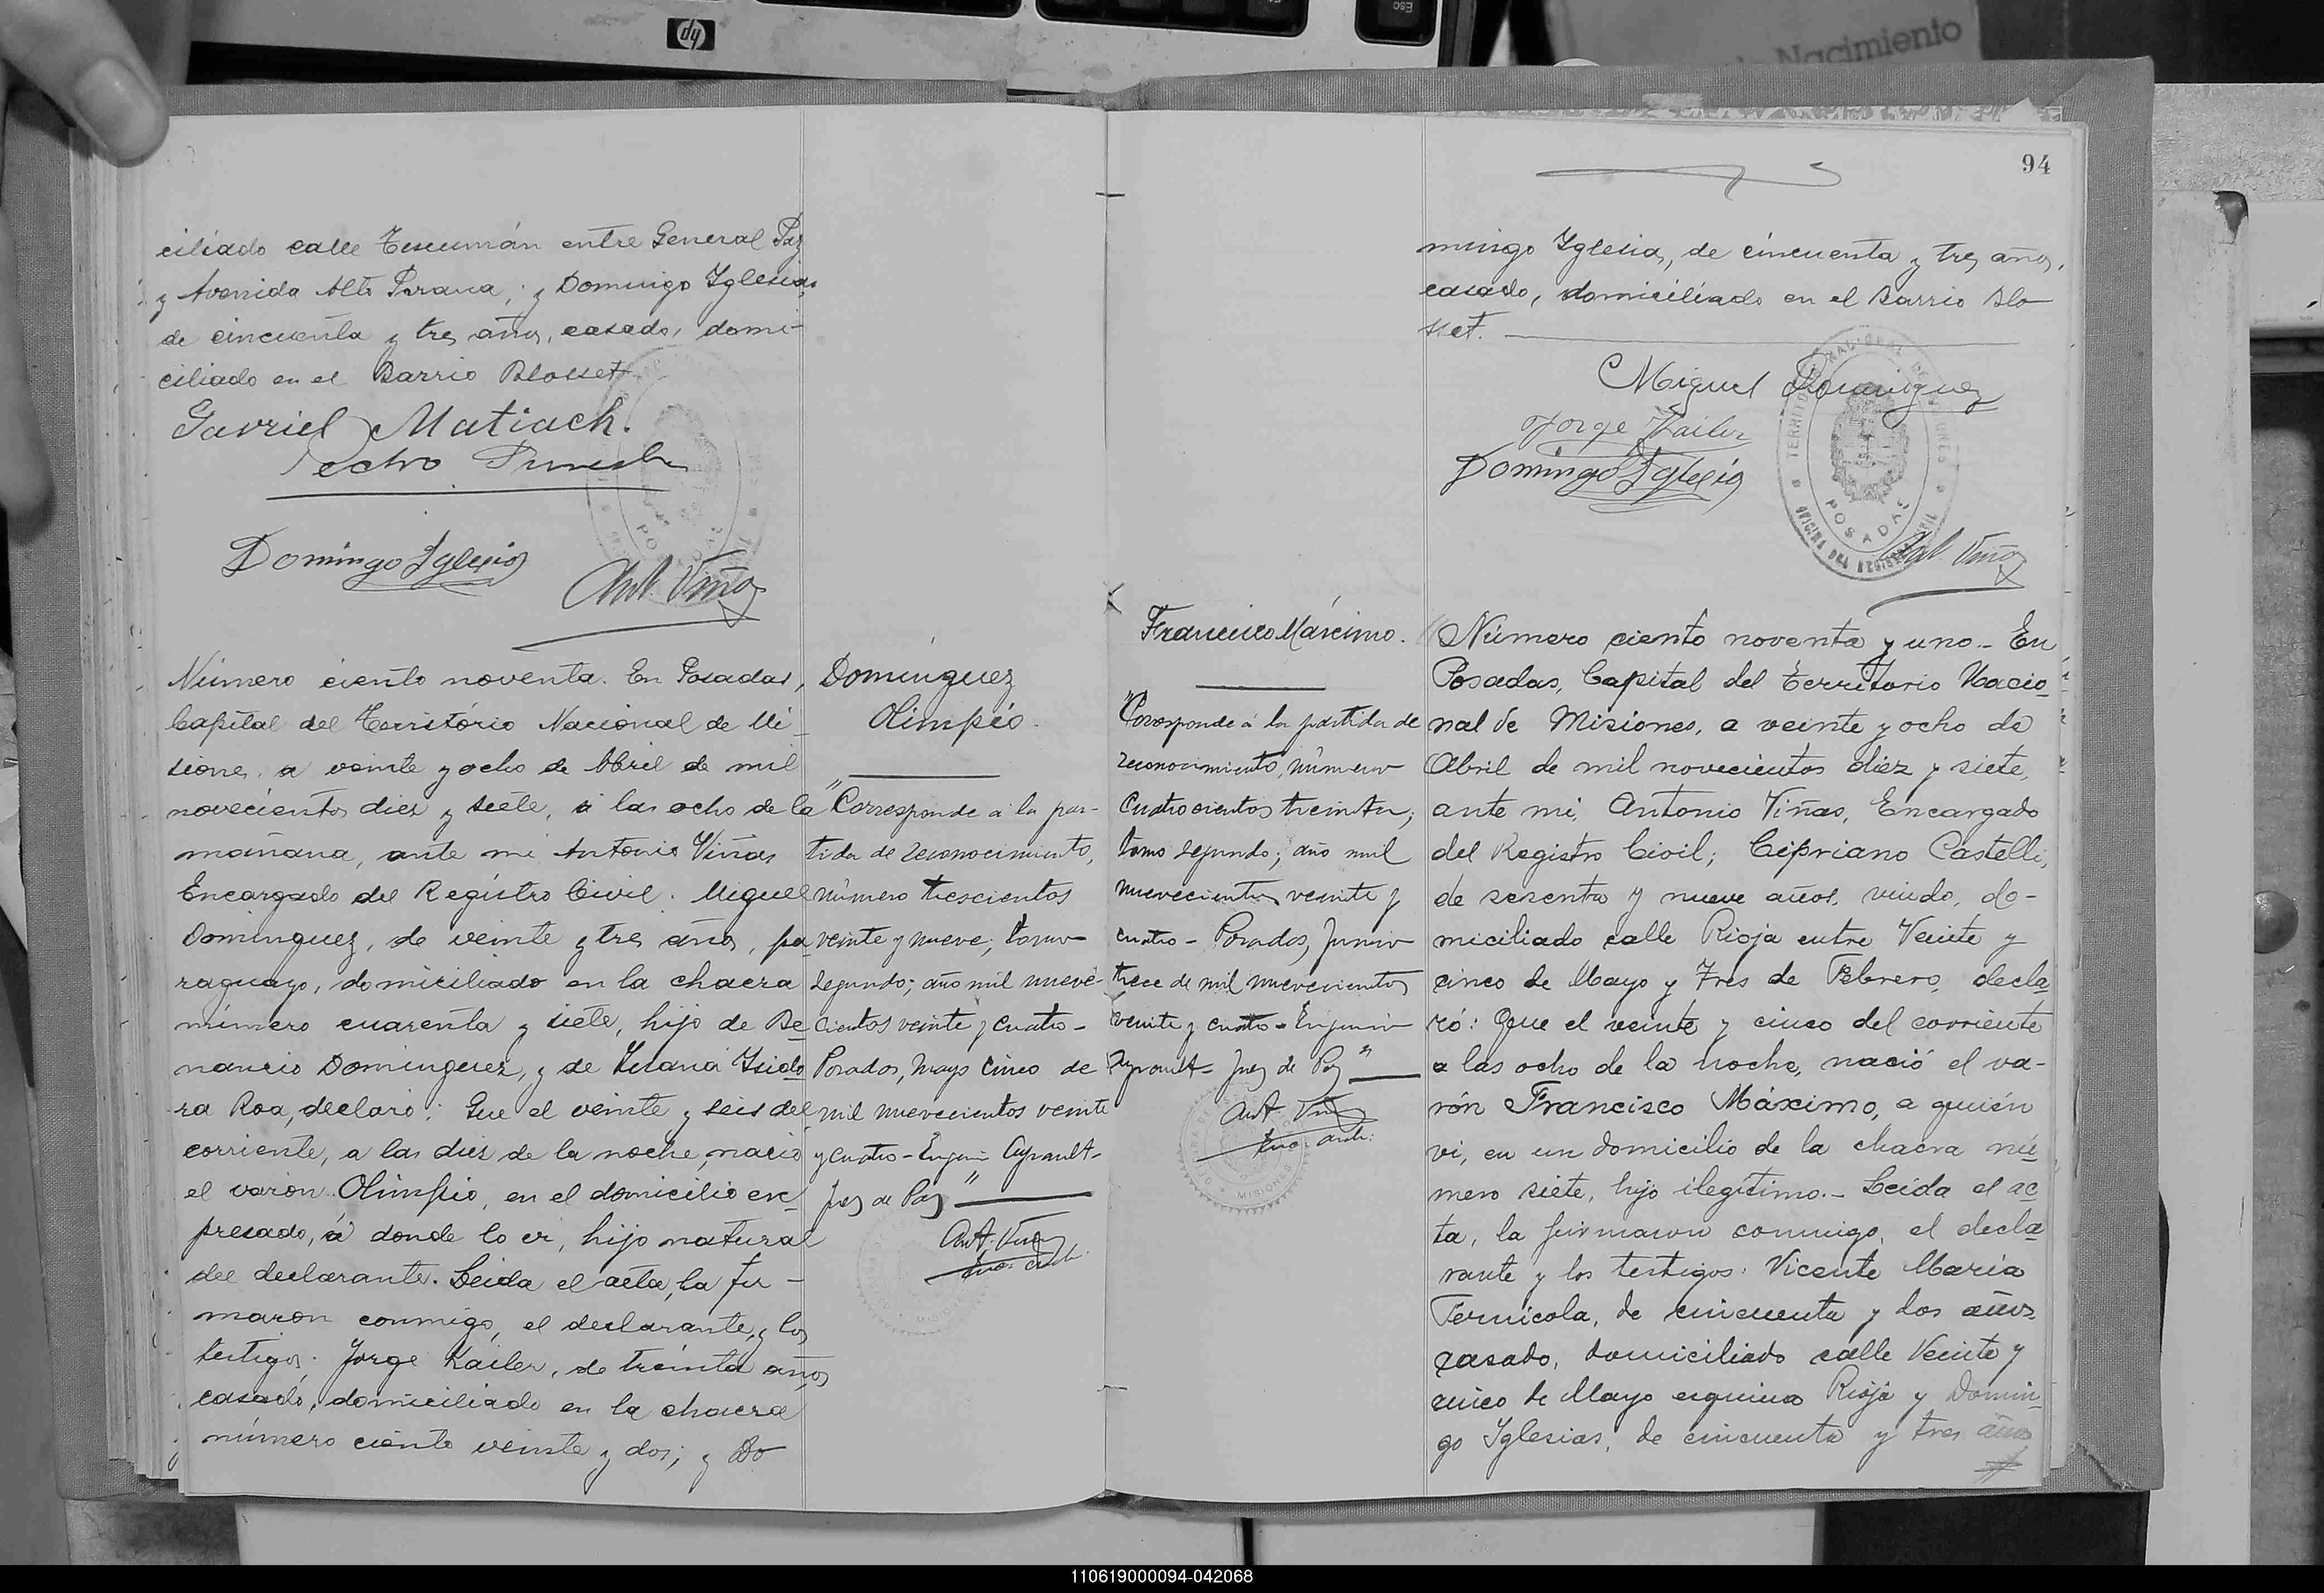 hp
ESC
Nacimiento
ciliado calle Tucumán entre General Paz
y Avenida Alto Parana; y Domingo Iglesias
de cincuenta y tres años, casado, domi-
ciliado en el Barrio Blosset
Gavriel Matiach.
Pedro
Domingo Iglesias
Ant. Viñas
Número ciento noventa. En Posadas,
Capital del Territorio Nacional de Mi-
siones, a veinte y ocho de Abril de mil
novecientos diez y siete, a las ocho de la
mañana, ante mi Antonio Viñas
Encargado del Registro Civil. Miguel
Dominguez, de veinte y tres años, pa-
raguayo, domiciliado en la chacra
número cuarenta y siete, hijo de Be-
nancio Dominguez, y de Juana Isido-
ra Roa, declaró: Que el veinte y seis del
corriente, a las diez de la noche, nació
el varon Olimpio, en el domicilio ex-
presado, a donde lo vi, hijo natural
del declarante. Leida el acta, la fir-
maron conmigo, el declarante, y los
testigos: Jorge Kailer, de treinta años,
casado, domiciliado en la chacra
número ciento veinte y dos; y Do
Dominguez
Olimpio.
"Corresponde a la par-
tida de reconocimiento,
número trescientos
veinte y nueve; tomo
segundo; año mil nueve-
cientos veinte y cuatro-
Posadas, mayo cinco de
mil nuevecientos veinte
y cuatro - Eugenio Ayrault-
Juez de Paz"
Ant. Viñas
94
mingo Iglesias, de cincuenta y tres años,
casado, domiciliado en el Barrio Blo-
sset.
Miguel Dominguez
Jorge Kailer
Domingo Iglesias
POSADAS
Ant. Viñas
Francisco Máximo.
"Corresponde a la partida de
reconocimiento, número
cuatrocientos treinta;
tomo segundo; año mil
nuevecientos veinte y
cuatro - Posadas, Junio
trece de mil nuevecientos
veinte y cuatro - Eugenio
Ayrault - Juez de Paz"
Ant. Viñas
MISIONES
Número ciento noventa y uno.- En
Posadas, Capital del Territorio Nacio-
nal de Misiones, a veinte y ocho de
Abril de mil novecientos diez y siete,
ante mi, Antonio Viñas, Encargado
del Registro Civil; Cipriano Castelli,
de sesenta y nueve años, viudo, do-
miciliado calle Rioja entre Veinte y
cinco de Mayo y Tres de Febrero, decla-
ró: Que el veinte y cinco del corriente
a las ocho de la noche, nació el va-
rón Francisco Máximo, a quién
vi, en un domicilio de la chacra nú-
mero siete, hijo ilegítimo.- Leída el ac-
ta, la firmaron conmigo, el decla-
rante y los testigos: Vicente Maria
Ternícola, de cincuenta y dos años
casado, domiciliado calle Veinte y
cinco de Mayo esquina Rioja y Domin-
go Iglesias, de cincuenta y tres años
110619000094-042068